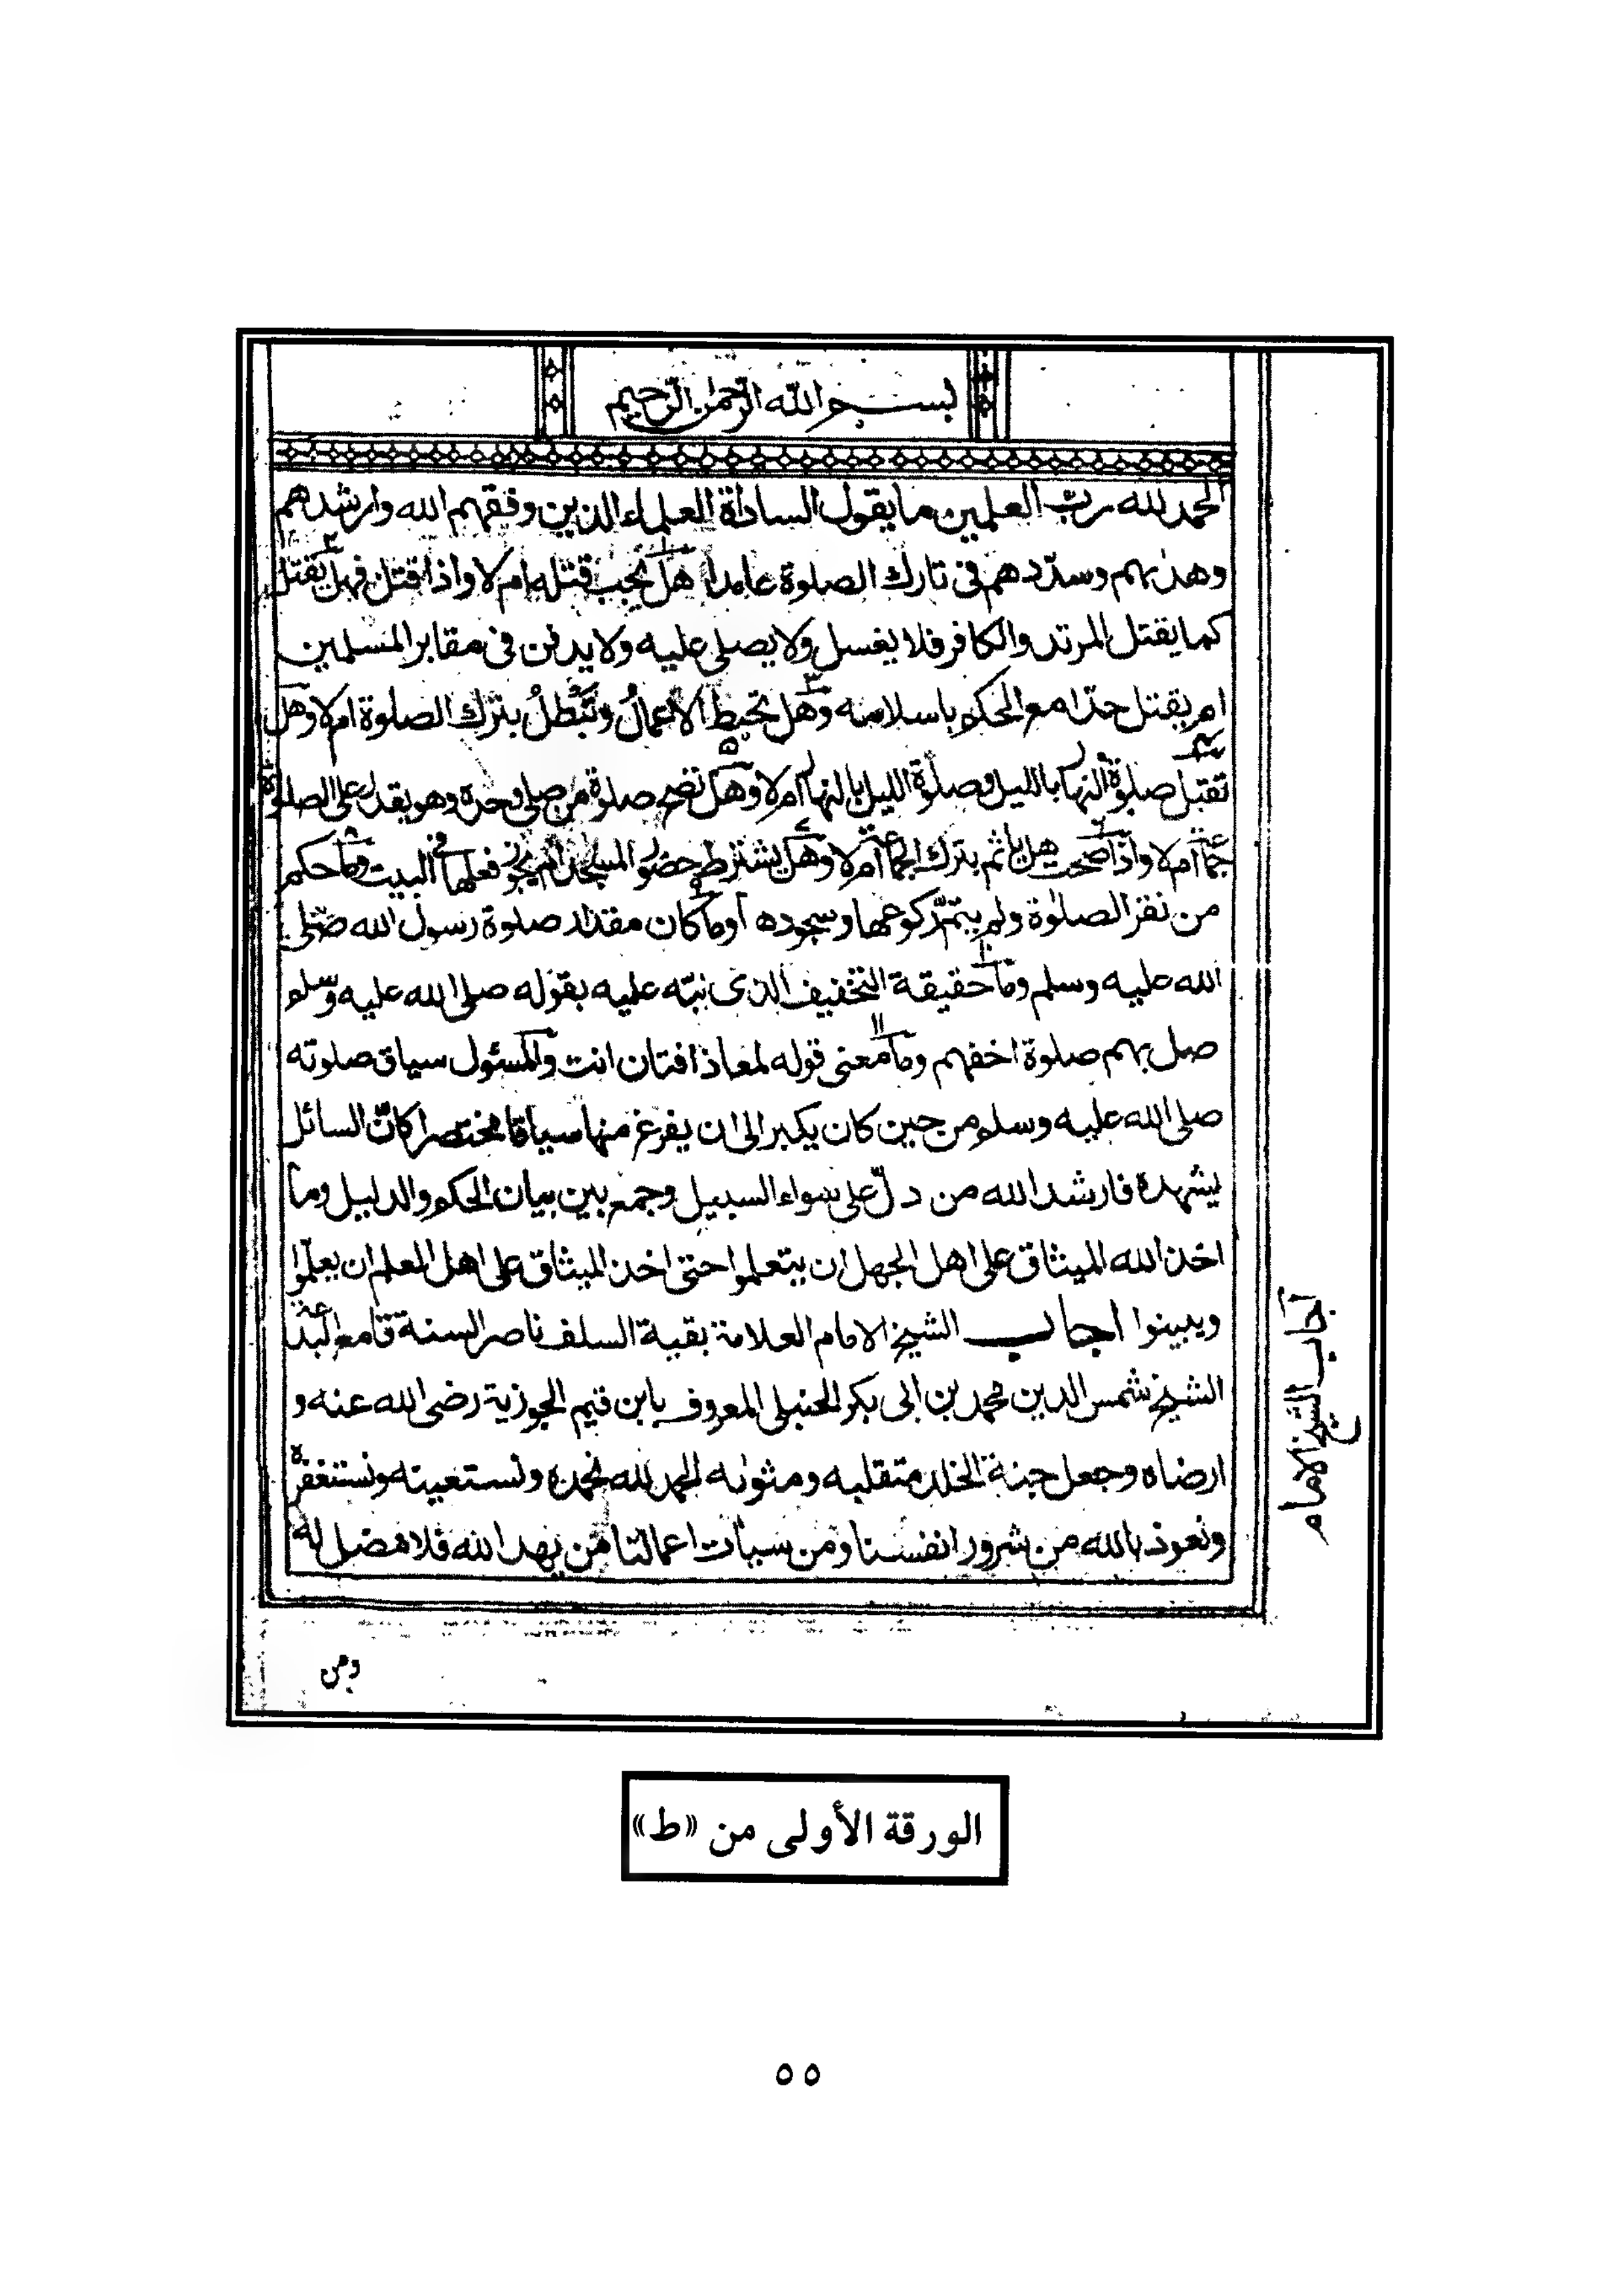 بسم الله الرحمن الرحيم
الحمد لله رب العلمين ما يقول السادة العلماء الذين وفقهم الله وارشدهم
وهذبهم وسدّدهم فى تارك الصلوة عامدا هل يجب قتله ام لا واذا قتل فهل يقتل
كما يقتل المرتد والكافر فلا يغسل ولا يصلى عليه ولا يدفن فى مقابر المسلمين
ام يقتل حدّا مع الحكم باسلامه وهل تحبط الأعمالُ وتَبْطلُ بترك الصلوة ام لا وهل
تقبل صلوة النهار بالليل وصلوة الليل بالنهار ام لا وهل تصح صلوة من صلى وحده وهو يقدر على الصلوة
جماعة ام لا واذا صحت هل ياثم بترك الجماعة ام لا وهل يشترط حضور المسجد ام يجوز فعلها فى البيت وما حكم
من نقر الصلوة ولم يتمّ ركوعها وسجودها وما كان مقدار صلوة رسول الله صلّى
الله عليه وسلم وما حقيقة التخفيف الذى نبّه عليه بقوله صلى الله عليه وسلم
صل بهم صلوة اخفهم وما معنى قوله لمعاذ افتان انت والمسئول سياق صلوته
صلى الله عليه وسلم من حين كان يكبر الى ان يفرغ منها سياقا مختصرا كانّ السائل
يشهده فارشد الله من دلّ على سواء السبيل وجمع بين بيان الحكم والدليل وما
اخذ الله الميثاق على اهل الجهل ان يتعلموا حتى اخذ الميثاق على اهل العلم ان يعلّموا
ويبينوا اجاب الشيخ الامام العلامة بقية السلف ناصر السنة قامع البدعة
الشيخ شمس الدين محمد بن ابى بكر الحنبلى المعروف بابن قيم الجوزية رضى الله عنه و
ارضاه وجعل جنة الخلد متقلبه ومثوىه الحمد لله نحمده ونستعينه ونستغفره
ونعوذ بالله من شرور انفسنا ومن سيأت اعمالنا من يهد الله فلا مضل له
ومن
أجاب الشيخ الامام
الورقة الأولى من «ط»
٥٥